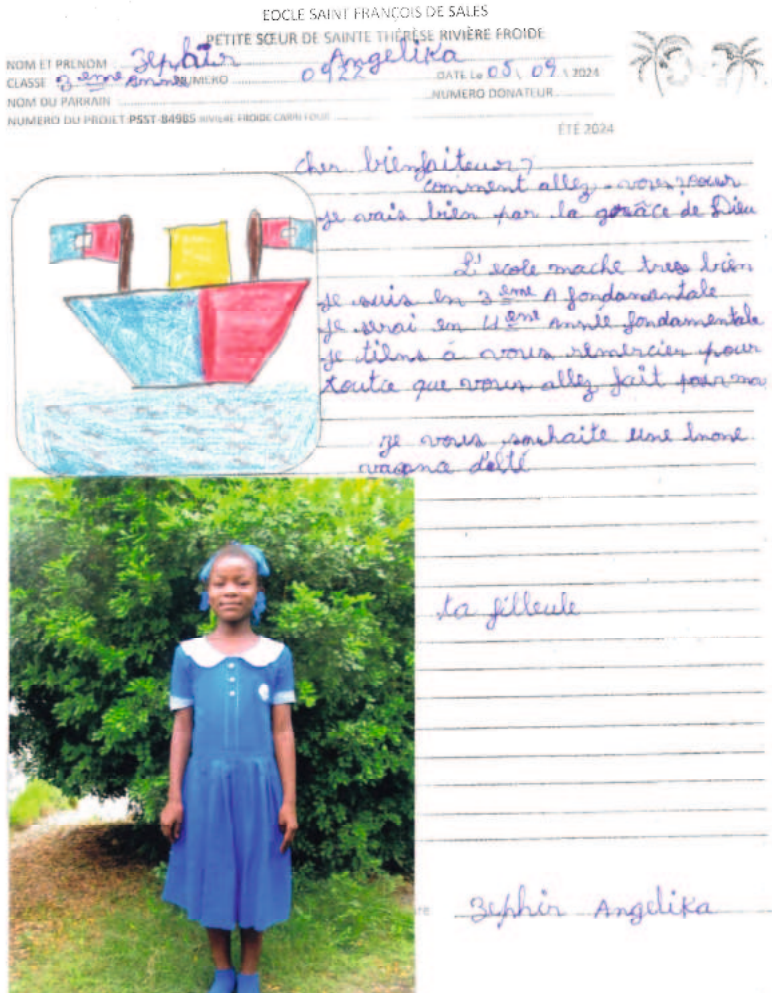 EOCLE SAINT FRANCOIS DE SALES
PETITE SŒUR DE SAINTE THÉRÈSE RIVIÈRE FROIDE
NOM ET PRENOM : Zephir Angelika
CLASSE 3 eme Année NUMERO 0922 DATE Le 05 \ 09 \ 2024
NOM DU PARRAIN NUMERO DONATEUR
NUMERO DU PROJET PSST-B4985 RIVIERE FROIDE CARREFOUR
ÉTÉ 2024
cher bienfaiteur,
comment allez-vous? pour
je vais bien par la gorâce de Dieu
L' ecole mache tres bien
je suis en 3 eme A fondamantale
je serai en 4 eme année fondamentale
je tiens à vous remercier pour
toutce que vous allez fait pour ma
ze vous souhaite une bnone
vacana d'eté
ta filleule
re Zephir Angelika